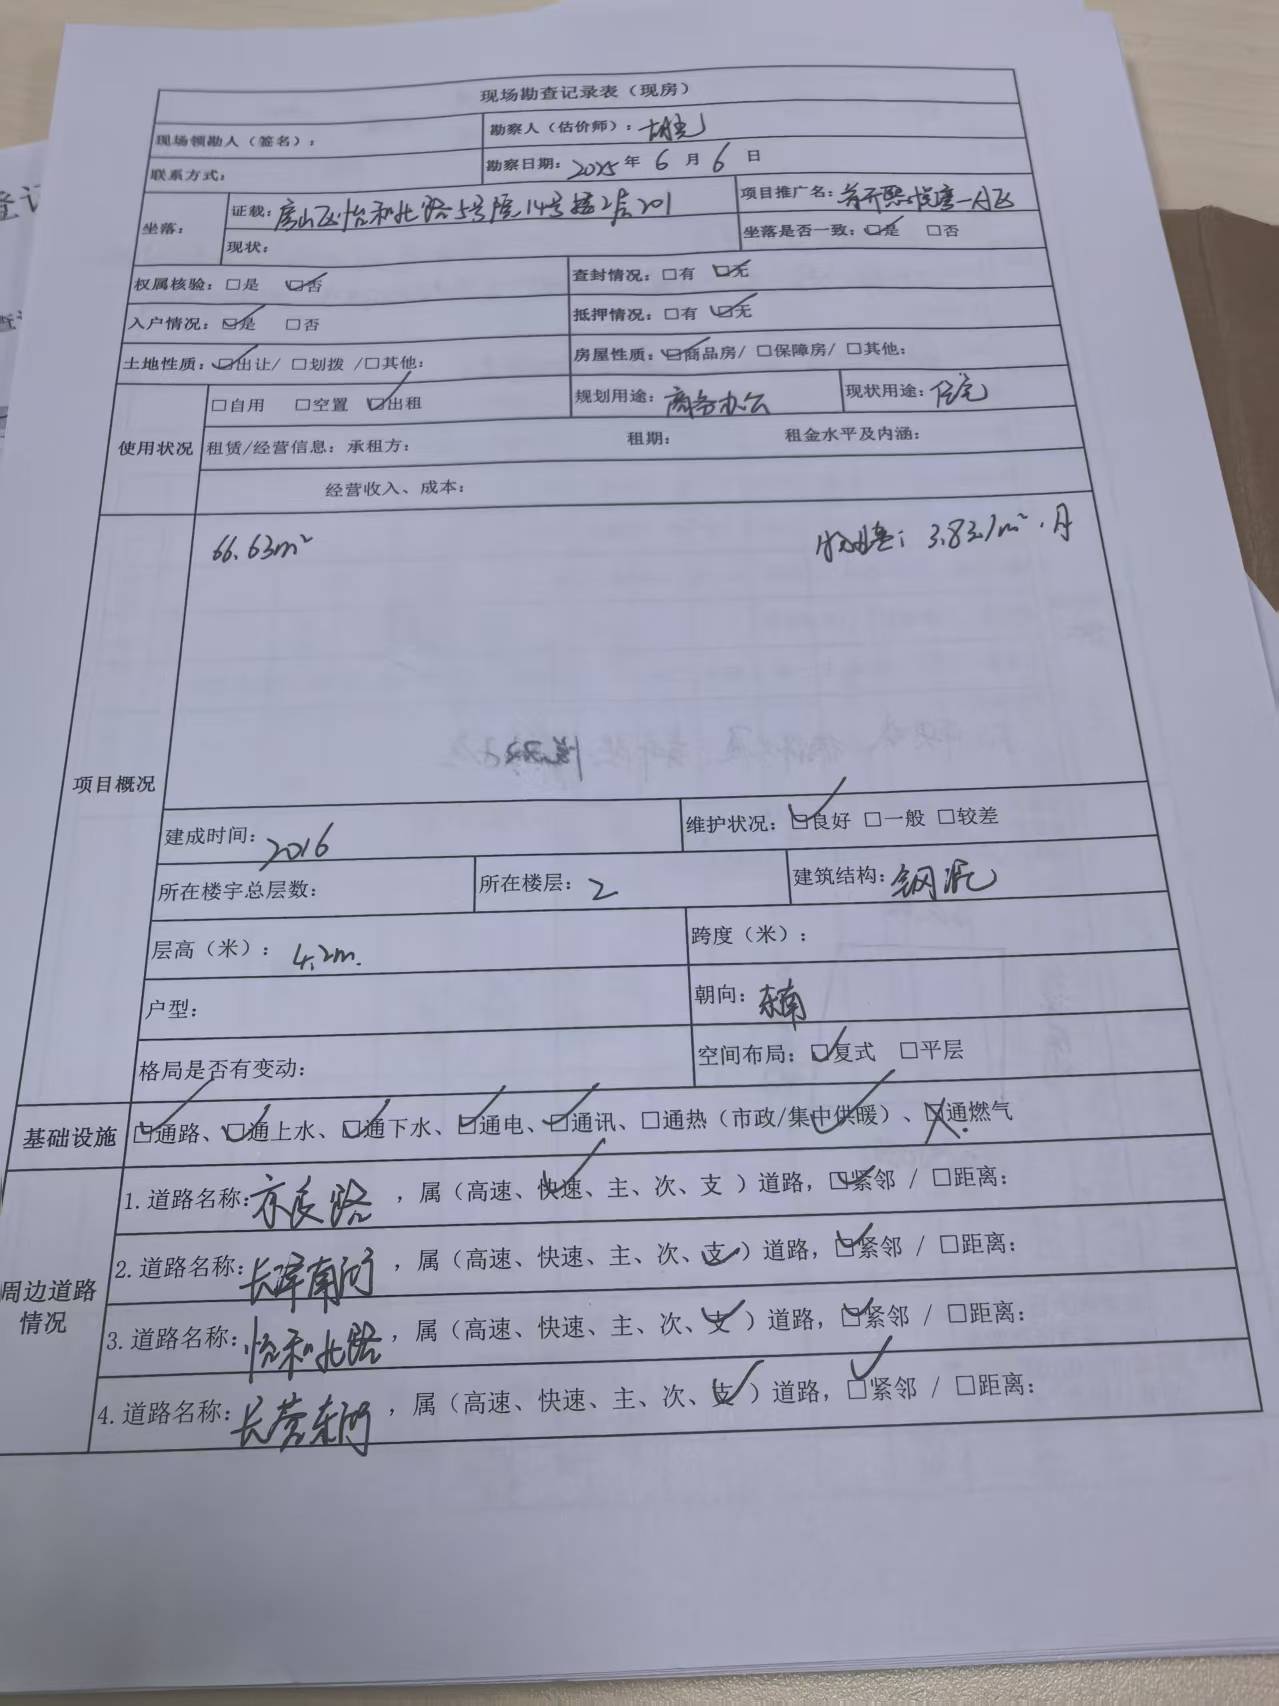 现场勘查记录表（现房）
现场领勘人（签名）： 勘察人（估价师）：
联系方式： 勘察日期：2025年 6 月 6 日
坐落： 证载：房山区怡和北路5号院14号楼2层201 项目推广名：首开熙悦睿
现状： 坐落是否一致：☑是 □否
权属核验：□是 ☑否 查封情况：□有 ☑无
入户情况：☑是 □否 抵押情况：□有 ☑无
土地性质：☑出让/ □划拨 /□其他： 房屋性质：☑商品房/ □保障房/ □其他：
使用状况 □自用 □空置 ☑出租 规划用途：商务办公 现状用途：住宅
租赁/经营信息：承租方： 租期： 租金水平及内涵：
经营收入、成本：
项目概况
66.63m² 3.83/m²·月
建成时间：2016 维护状况：☑良好 □一般 □较差
所在楼宇总层数： 所在楼层：2 建筑结构：钢混
层高（米）：4.2m. 跨度（米）：
户型： 朝向：东南
格局是否有变动： 空间布局：☑复式 □平层
基础设施 ☑通路、☑通上水、☑通下水、☑通电、☑通讯、□通热（市政/集中供暖）、☒通燃气
周边道路情况
1.道路名称：京良路，属（高速、快速、主、次、支 ）道路，☑紧邻 / □距离：
2.道路名称：，属（高速、快速、主、次、支 ）道路，☑紧邻 / □距离：
3.道路名称：怡和北路，属（高速、快速、主、次、支 ）道路，☑紧邻 / □距离：
4.道路名称：，属（高速、快速、主、次、支 ）道路，☑紧邻 / □距离：